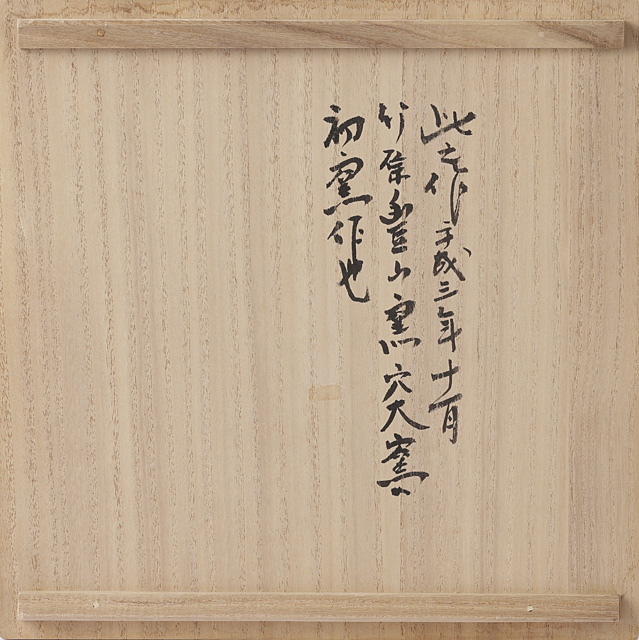 此之作平成三年十一月
竹原豊山窯穴大窯
初窯作也